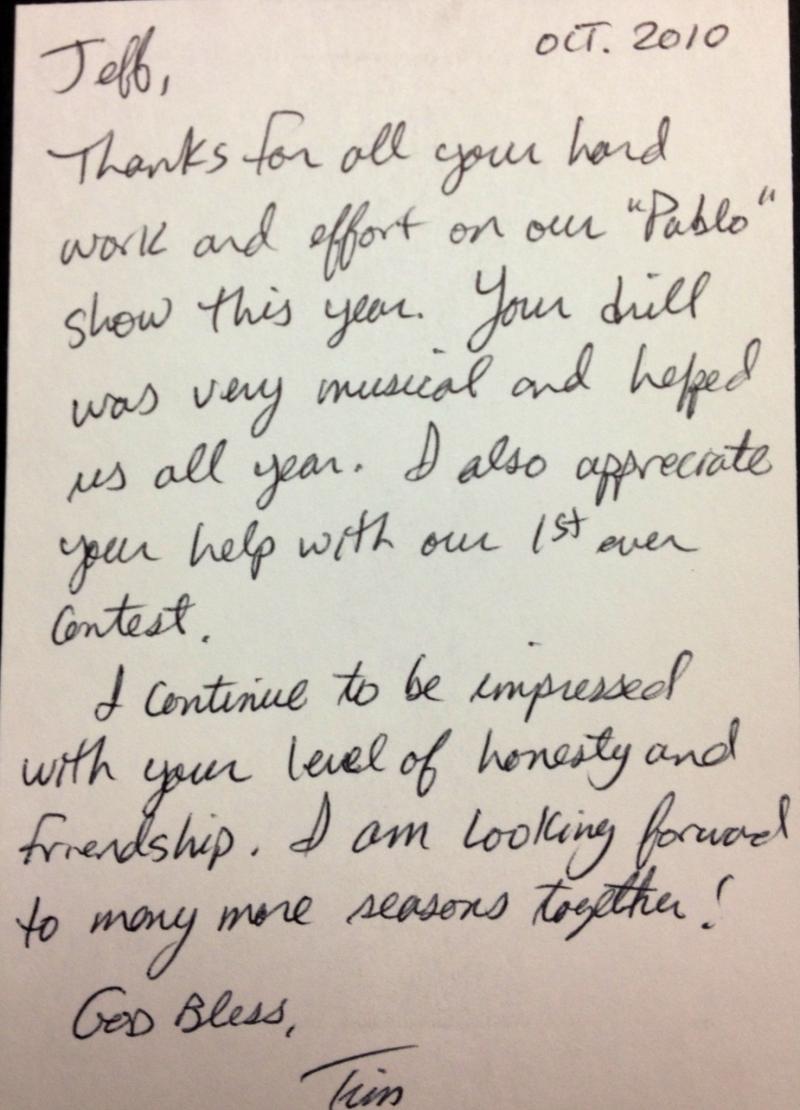 Jeff,
OCT. 2010
Thanks for all your hard
work and effort on our "Pablo"
show this year. Your drill
was very musical and helped
us all year. I also appreciate
your help with our 1st ever
contest.
I continue to be impressed
with your level of honesty and
friendship. I am looking forward
to many more seasons together!
God Bless,
Tim